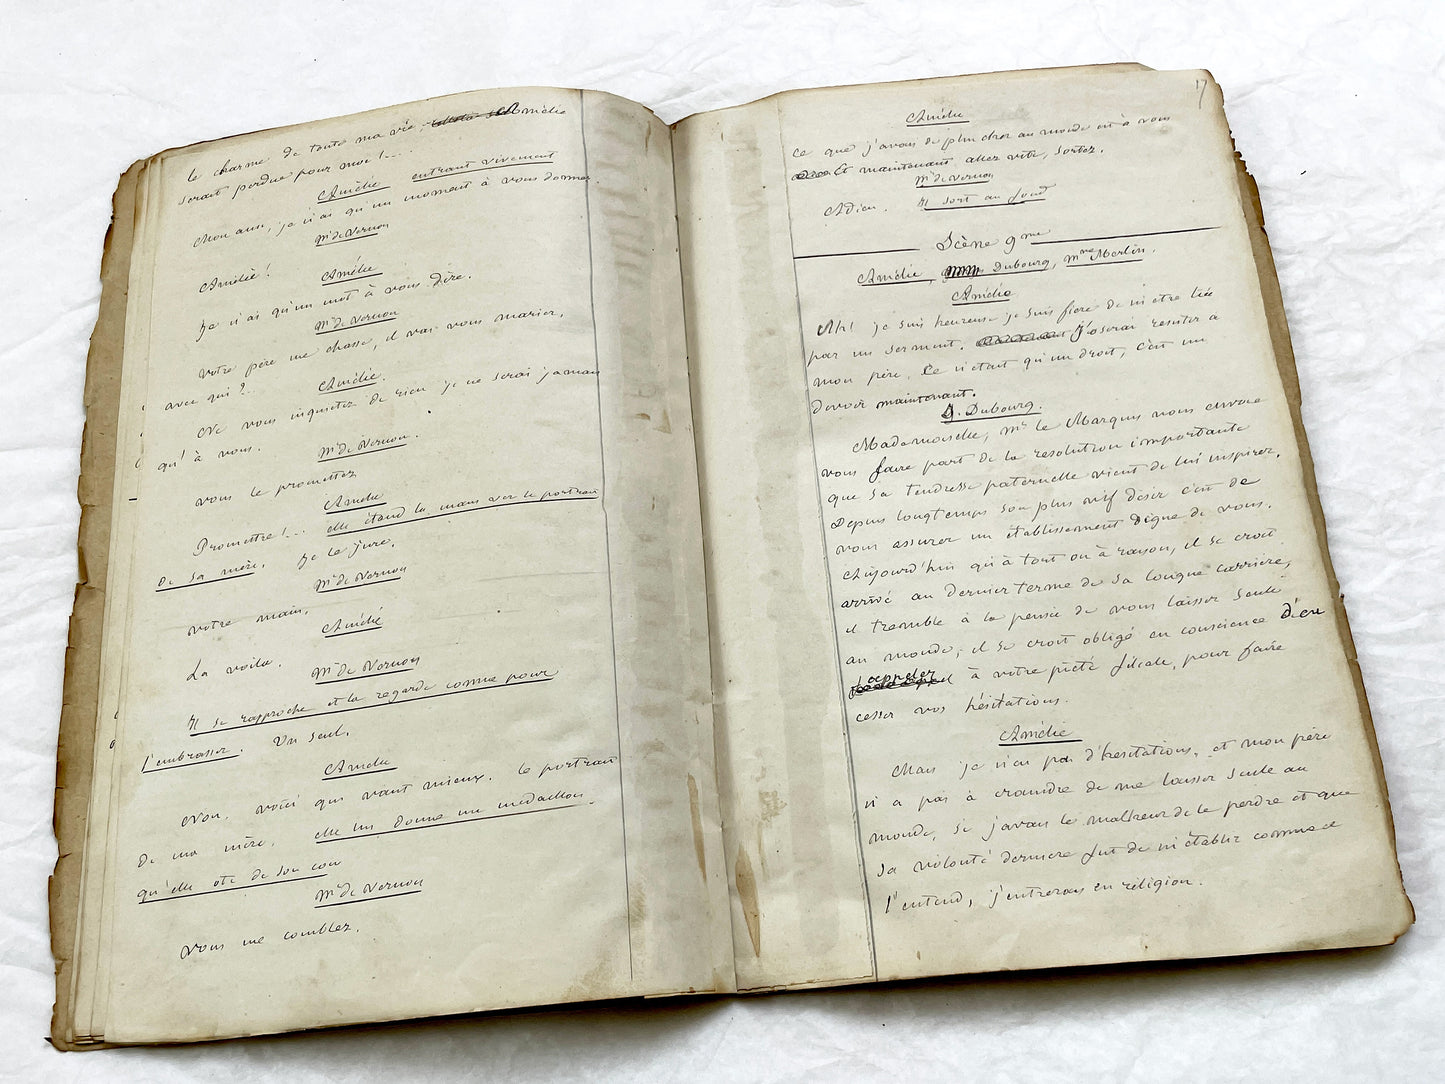 le charme de toute ma vie, Amélie
serait perdue pour moi!....
Amélie entrant vivement
Mon ami, je n'ai qu'un moment à vous donner.
Mr de Vernon
Amélie!
Amélie
Je n'ai qu'un mot à vous dire.
Mr de Vernon
Votre père me chasse, il va vous marier,
avec qui?..
Amélie.
Ne vous inquietez de rien je ne serai jamais
qu'à vous.
Mr de Vernon.
vous le promettez
Amélie
Promettre!... elle étend la main ver le portrait
de sa mère. Je le jure.
Mr de Vernon
votre main.
Amélie
La voila.
Mr de Vernon
Il se rapproche et la regarde comme pour
l'embrasser. Un seul.
Amélie
Non, voici qui vaut mieux. le portrait
de ma mère. elle lui donne un medaillon.
qu'elle ote de son cou
Mr de Vernon
Vous me comblez.
17
Amélie
Ce que j'avais de plus cher au monde est à vous
Et maintenant allez vite, sortez.
Mr de Vernon
Adieu. Il sort au fond
Scène 9me
Amélie, Dubourg, Mme Merlin.
Amélie
Ah! je suis heureuse je suis fière de m'etre liée
par un serment. J'oserai resister a
mon père. Ce n'etait qu'un droit, c'est un
devoir maintenant.
Dubourg.
Mademoiselle, Mr le Marquis nous envoie
vous faire part de la resolution importante
que sa tendresse paternelle vient de lui inspirer.
Depuis longtemps son plus vif desir c'est de
vous assurer un établissement digne de vous.
Aujourd'hui qu'à tort ou à raison, il se croit
arrivé au dernier terme de sa longue carrière,
il tremble à la pensée de vous laisser seule
au monde; il se croit obligé en conscience d'en
appeler à votre pieté filiale, pour faire
cesser vos hésitations.
Amélie
Mais je n'ai pas d'hesitations, et mon père
n'a pas à craindre de me laisser seule au
monde, si j'avais le malheur de le perdre et que
sa volonté derniere fut de m'établir comme il
l'entend, j'entrerais en religion.